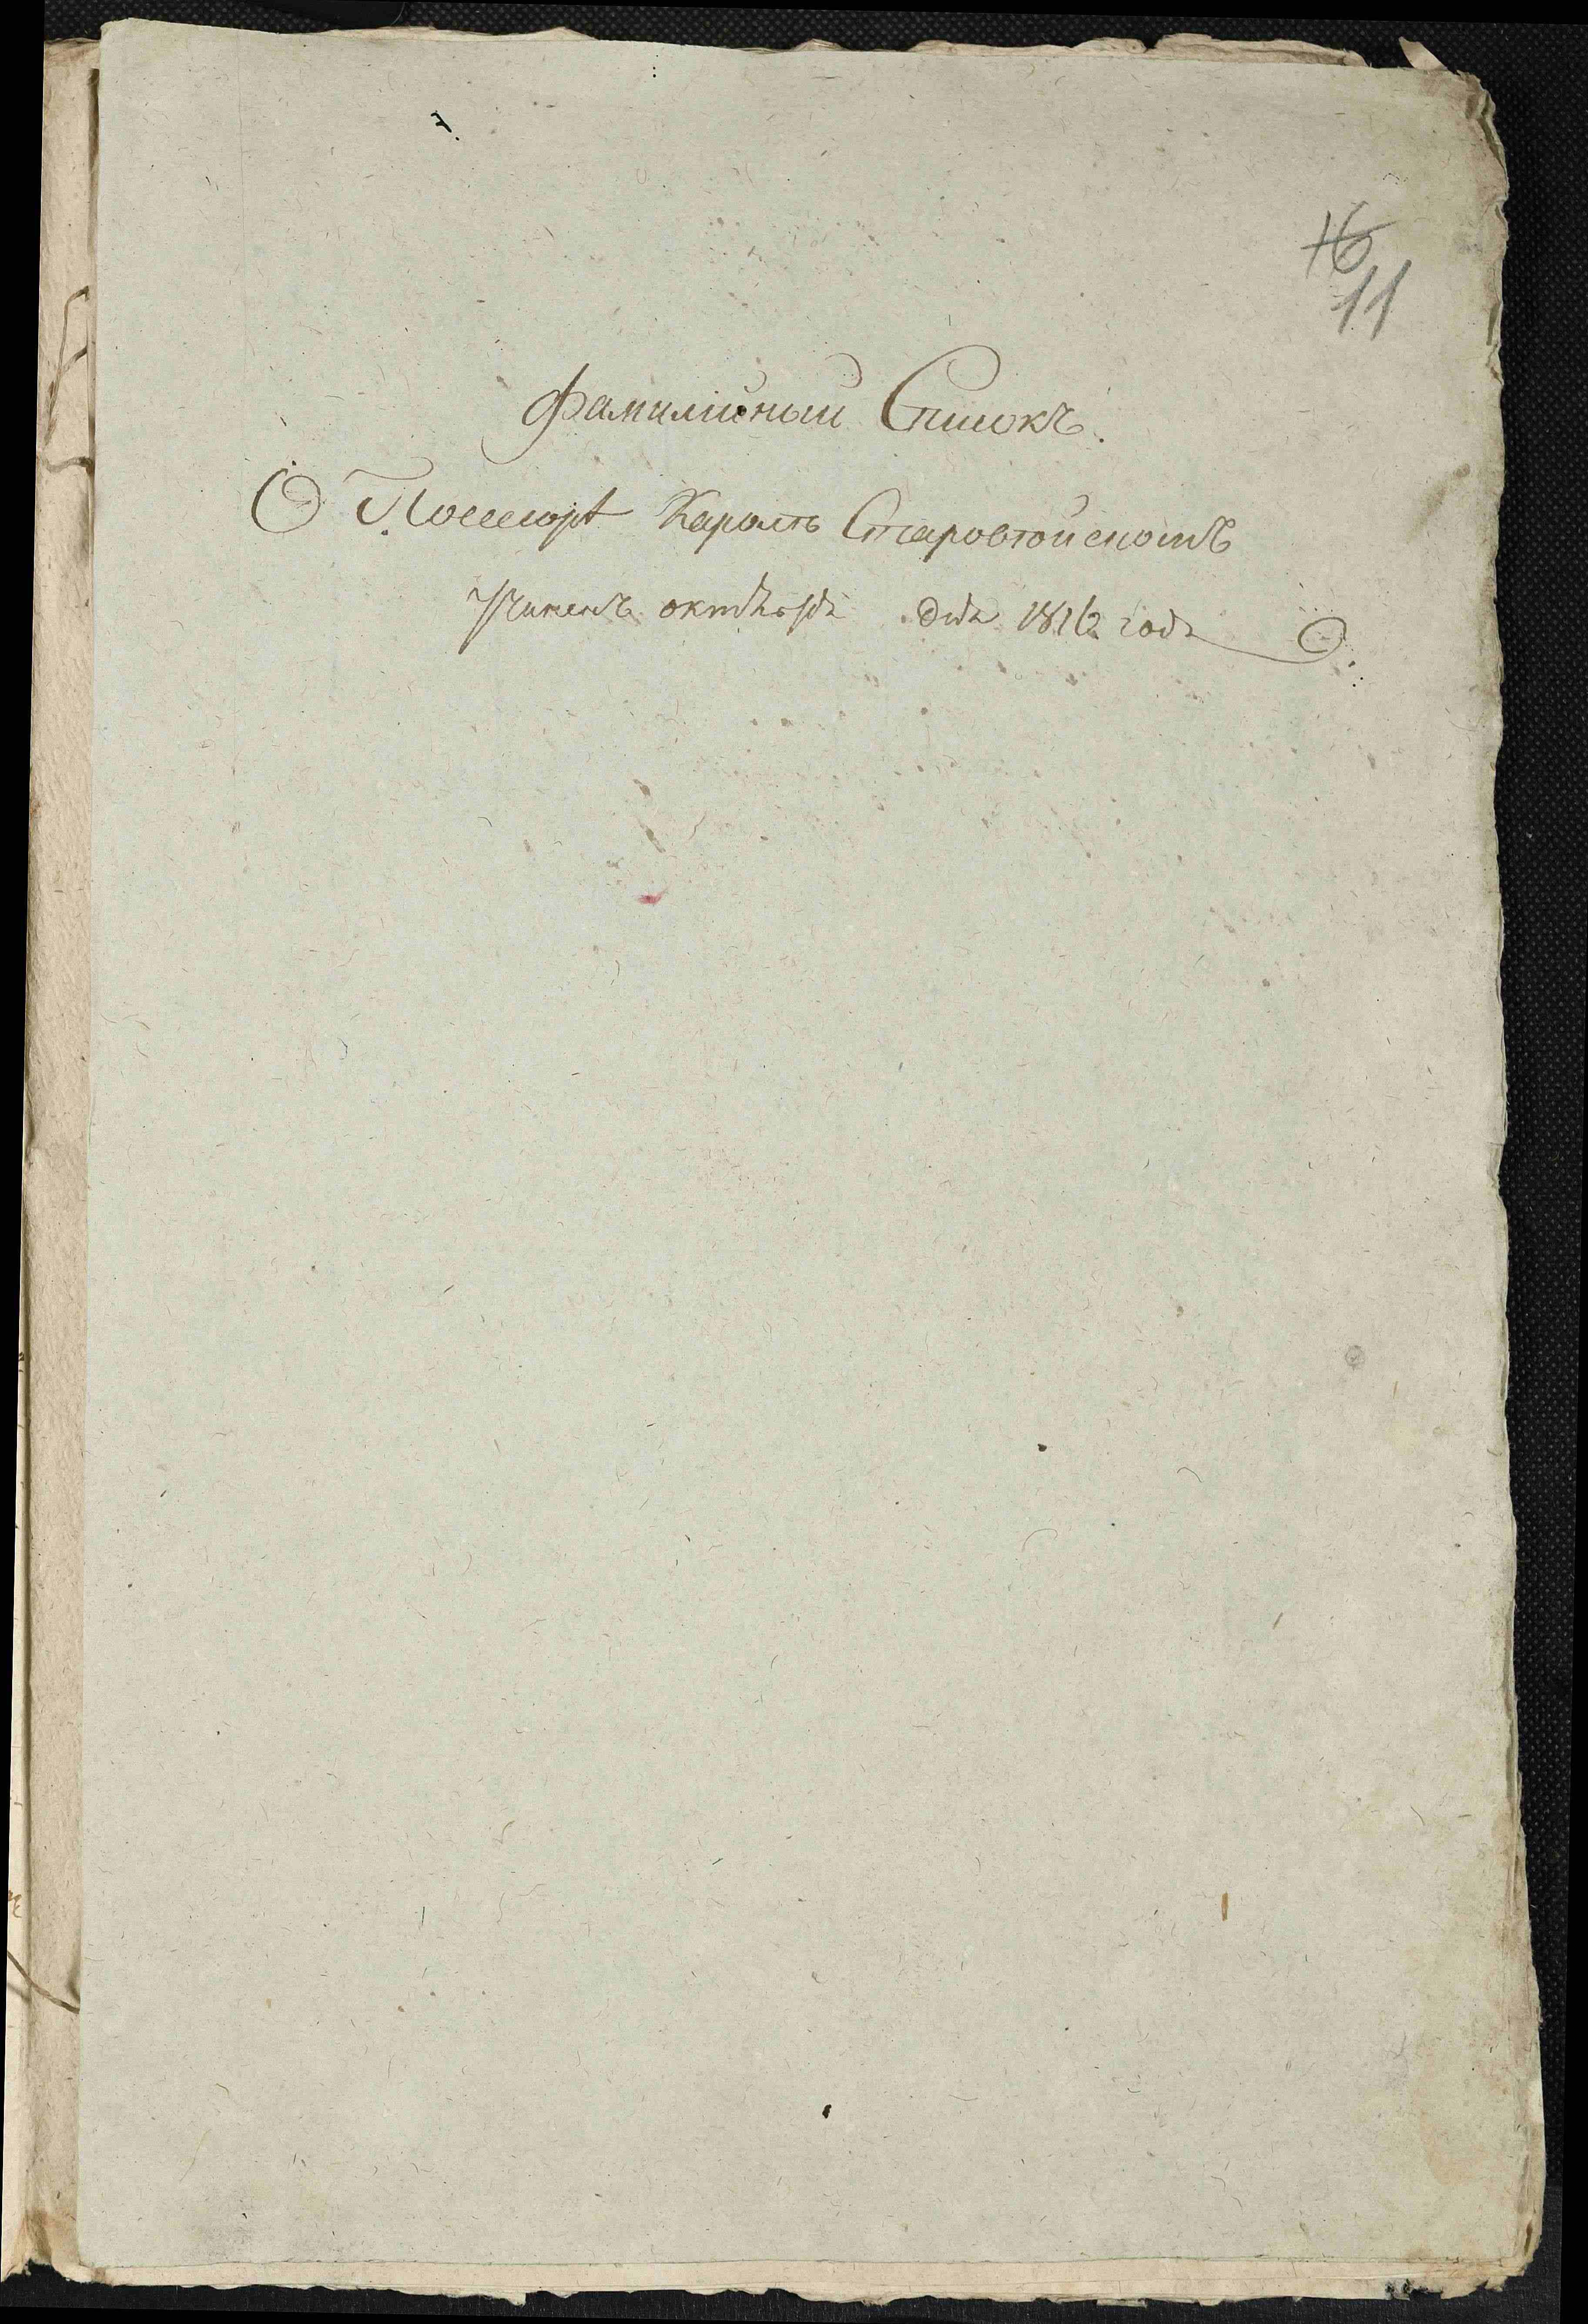 16
11
Фамилійный Списокъ.
О Поссесорѣ Каролѣ Старовтойскомъ
Учиненъ октября дня 1816 года